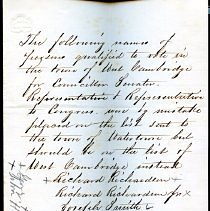 The following names of
Persons qualified to vote in
the town of West Cambridge
for Councillor Senator
Representative & Representative
to Congress were by mistake
placed on the list sent to
the town of Watertown but
should be on the list of
West Cambridge instead
+ Richard Richardson +
Richard Richardson jr +
Joseph Smith +